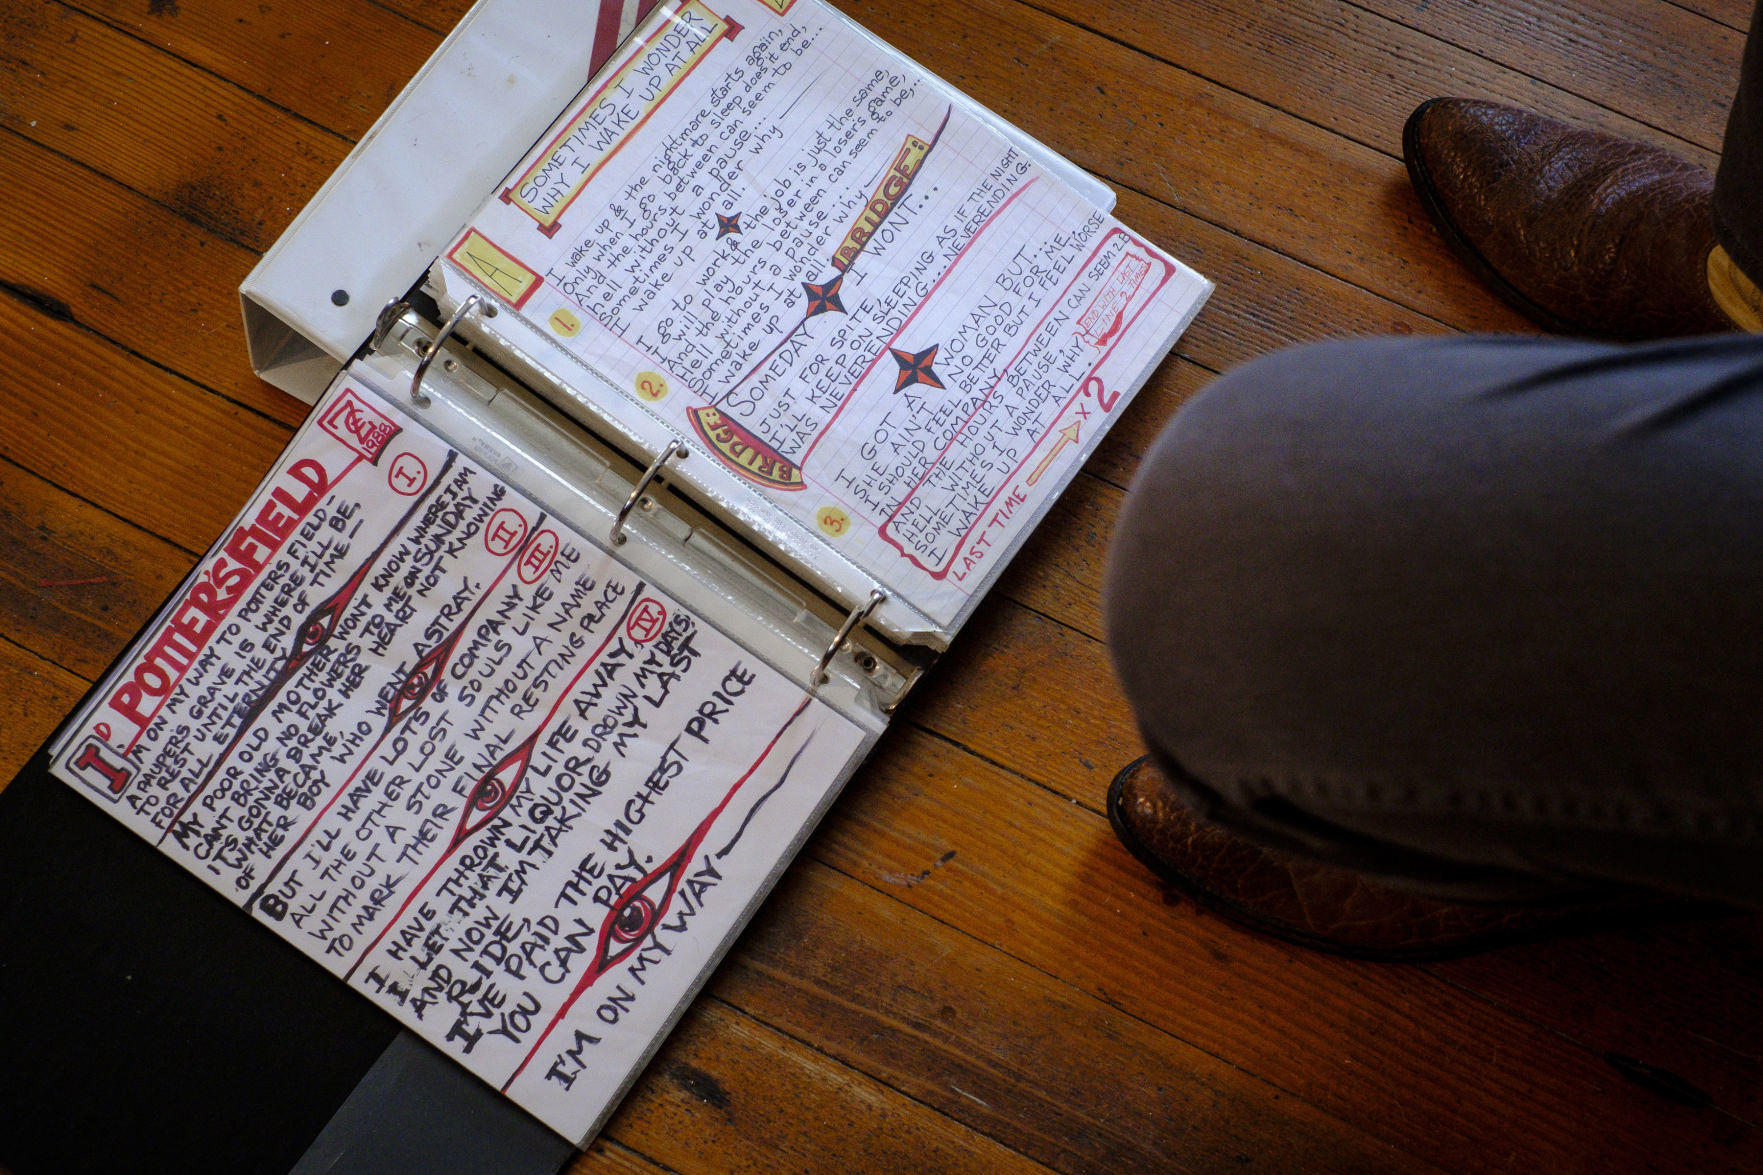 SOMETIMES I WONDER
WHY I WAKE UP AT ALL
A
1.
I wake up & the nightmare starts again,
Only when I go back to sleep does it end,
And the hours between can seem to be...
hell without a pause...
Sometimes I wonder why
I wake up at all.
2.
I go to work & the job is just the same,
I will play the loser in a loser's game,
And the hours between can seem to be,..
Hell without a pause...
Sometimes I wonder why
I wake up at all
BRIDGE:
SOMEDAY I WONT...
JUST FOR SPITE,
I'LL KEEP ON SLEEPING AS IF THE NIGHT
WAS NEVERENDING... NEVERENDING.
BRIDGE:
3.
I GOT A WOMAN BUT...
SHE AIN'T NO GOOD FOR ME,
I SHOULD FEEL BETTER BUT I FEEL WORSE
IN HER COMPANY,
AND THE HOURS BETWEEN CAN SEEM 2 B
HELL WITHOUT A PAUSE,
SOMETIMES I WONDER WHY
I WAKE UP AT ALL..
END WITH LAST
LINE 2 TIMES
LAST TIME X 2
1988
POTTER'SFIELD
I.
I'M ON MY WAY TO POTTERS FIELD -
A PAUPERS GRAVE IS WHERE I'LL BE.
TO REST UNTIL THE END OF TIME -
FOR ALL ETERNITY
MY POOR OLD MOTHER WONT KNOW WHERE I AM
CANT BRING NO FLOWERS TO ME ON SUNDAY
IT'S GONNA BREAK HER HEART NOT KNOWING
WHAT BECAME
OF HER BOY WHO WENT ASTRAY.
II.
III.
BUT I'LL HAVE LOTS OF COMPANY
ALL THE OTHER LOST SOULS LIKE ME
WITHOUT A STONE WITHOUT A NAME
TO MARK THEIR FINAL RESTING PLACE
IV.
I HAVE THROWN MY LIFE AWAY.
I LET THAT LIQUOR DROWN MY DAYS.
AND NOW I'M TAKING MY LAST
RIDE,
I'VE PAID THE HIGHEST PRICE
YOU CAN PAY.
I'M ON MY WAY